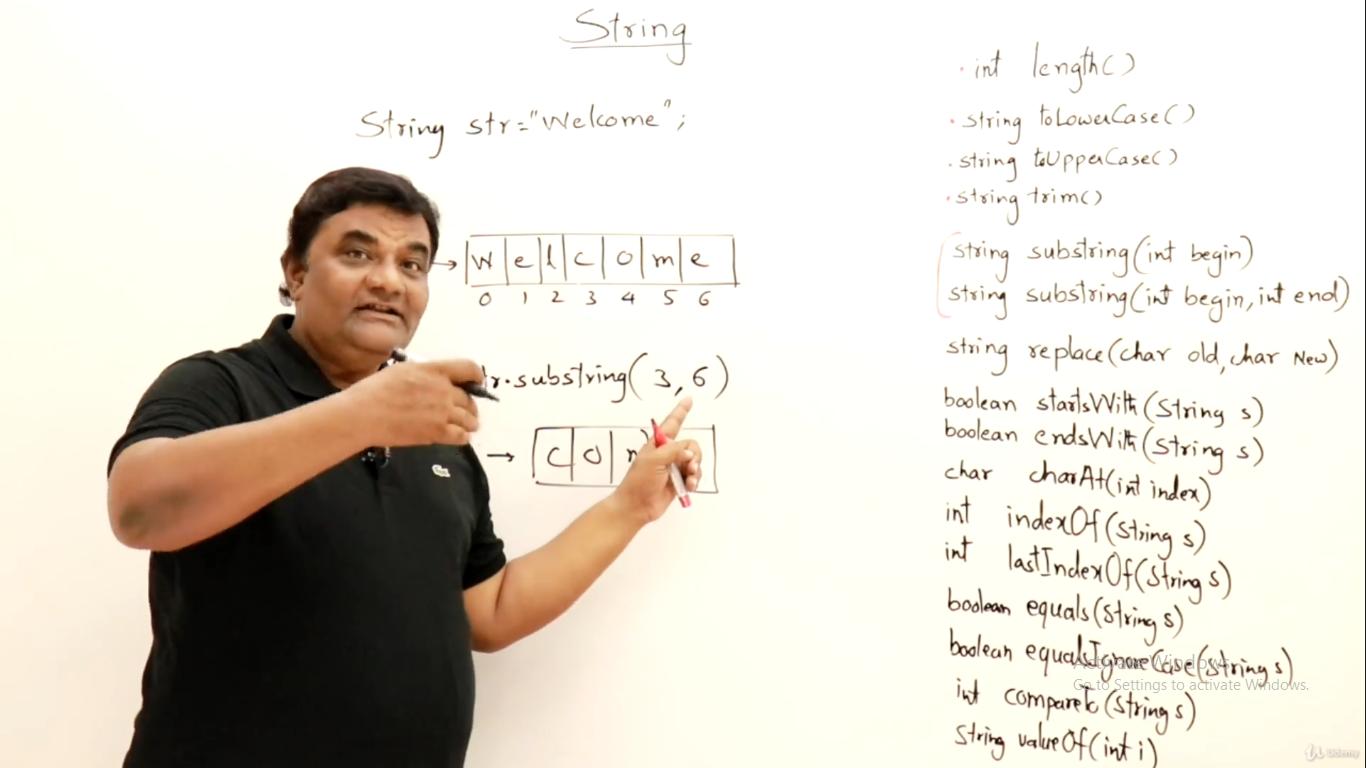 String
String str="Welcome";
W e l c o m e
0 1 2 3 4 5 6
.substring(3,6)
c o
int length()
string toLowerCase()
string toUpperCase()
string trim()
string substring(int begin)
string substring(int begin,int end)
string replace(char old,char New)
boolean startsWith(String s)
boolean endsWith(String s)
char charAt(int index)
int indexOf(String s)
int lastIndexOf(String s)
boolean equals(String s)
boolean equalsIgnoreCase(String s)
int compareTo(String s)
string valueOf(int i)
Activate Windows
Go to Settings to activate Windows.
Udemy